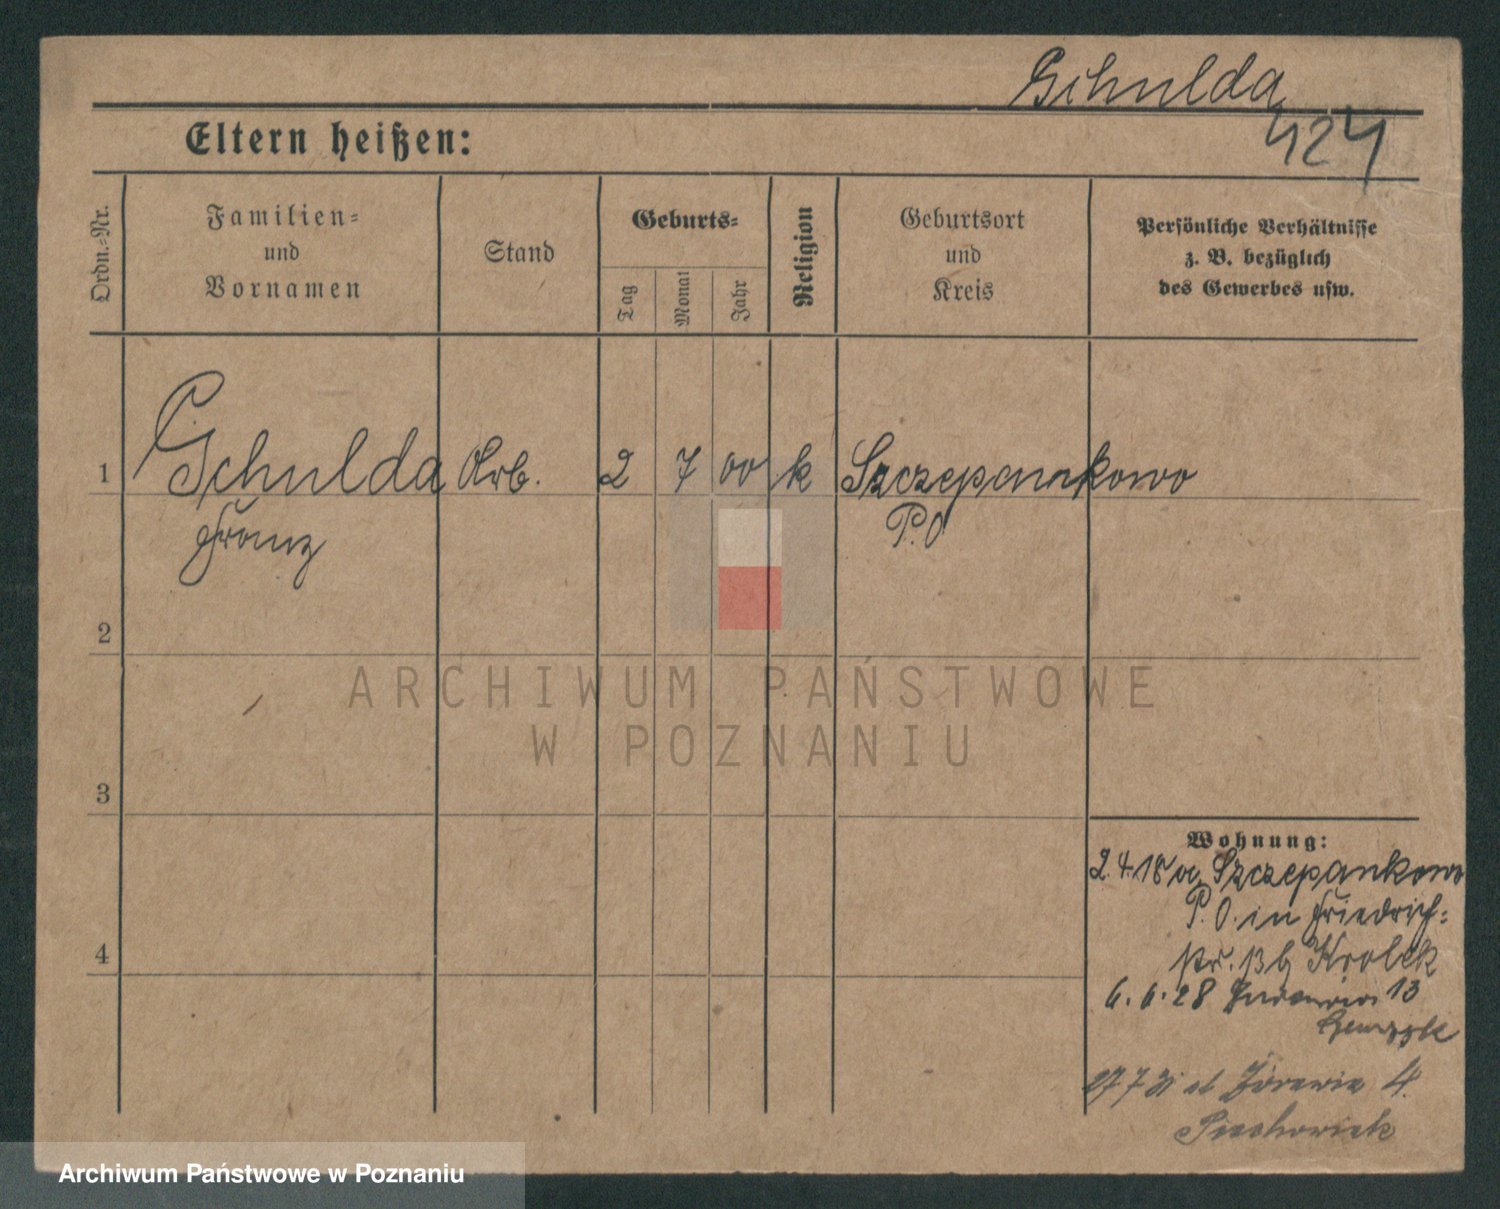 Gschulda
424
Eltern heißen:
Ordn.-Nr.
Familien-
und
Vornamen
Stand
Geburts-
Tag
Monat
Jahr
Religion
Geburtsort
und
Kreis
Persönliche Verhältnisse
z. B. bezüglich
des Gewerbes usw.
1
Gschulda Arb. 2 7 00 k Szczepankowo
Franz
P.O
2
ARCHIWUM PAŃSTWOWE
W POZNANIU
3
Wohnung:
2.4.18 Szczepankowo
P.O. in Friedrich-
str. 13 b
4
6.6.28 13
27 7 31 Żórawia 4.
Archiwum Państwowe w Poznaniu